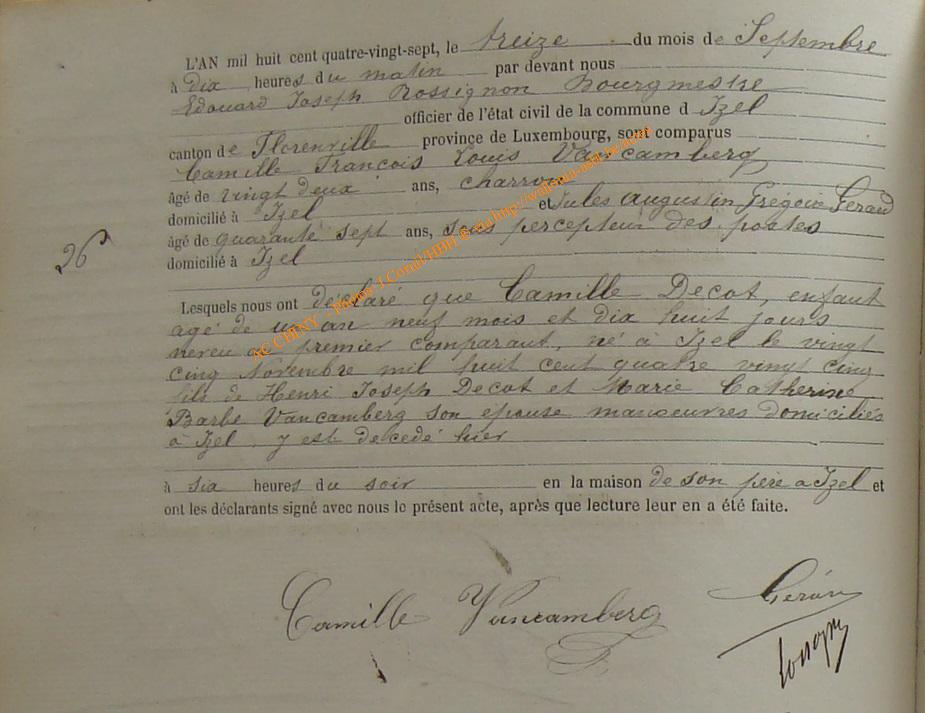 L'AN mil huit cent quatre-vingt-sept, le treize du mois de Septembre
à dix heures du matin par devant nous
Edouard Joseph Rossignon Bourgmestre
officier de l'état civil de la commune d Izel
canton de Florenville province de Luxembourg, sont comparus
Camille François Louis Vancamberg
âgé de vingt deux ans, charron
domicilié à Izel et Jules Augustin Grégoire Gérard
âgé de quarante sept ans, sous percepteur des postes
domicilié à Izel
26
Lesquels nous ont déclaré que Camille Decot, enfant
agé de un an neuf mois et dix huit jours
neveu du premier comparant, né à Izel le vingt
cinq Novembre mil huit cent quatre vingt cinq
fils de Henri Joseph Decot et Marie Catherine
Barbe Vancamberg son epouse manoeuvres domiciliés
à Izel, y est decedé hier
à six heures du soir en la maison de son père a Izel et
ont les déclarants signé avec nous le présent acte, après que lecture leur en a été faite.
Camille Vancamberg
AC CHINY - Patrice J.Cornil/HBH @ via http://